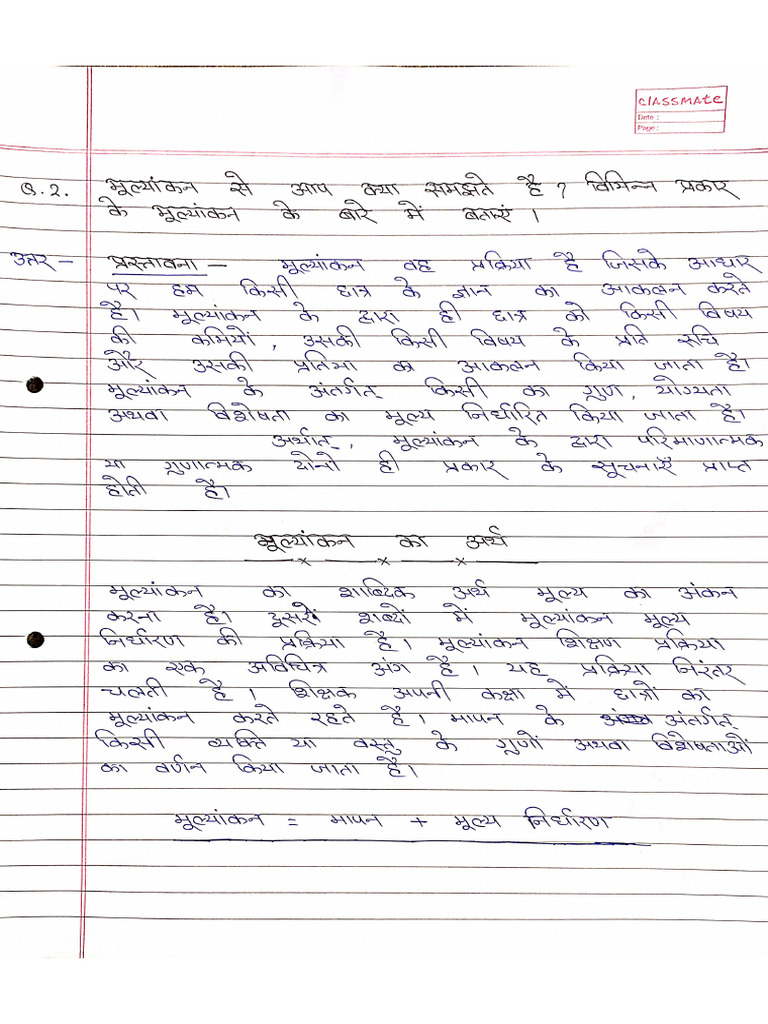 classmate
Date :
Page :
Q.2. मूल्यांकन से आप क्या समझते है ? विभिन्न प्रकार
के मूल्यांकन के बारे में बताएं ।
उत्तर – प्रस्तावना – मूल्यांकन वह प्रक्रिया है जिसके आधार
पर हम किसी छात्र के ज्ञान का आकलन करते
है। मूल्यांकन के द्वारा ही छात्र को किसी विषय
की कमियों , उसकी किसी विषय के प्रति रुचि
और उसकी प्रतिभा का आकलन किया जाता है।
मूल्यांकन के अंतर्गत् किसी का गुण , योग्यता
अथवा विशेषता का मूल्य निर्धारित किया जाता है।
अर्थात् , मूल्यांकन के द्वारा परिमाणात्मक
या गुणात्मक दोनो ही प्रकार के सूचनाएँ प्राप्त
होती है।
मूल्यांकन का अर्थ
मूल्यांकन का शाब्दिक अर्थ मूल्य का अंकन
करना है। दुसरे शब्दों में मूल्यांकन मूल्य
निर्धारण की प्रक्रिया है । मूल्यांकन शिक्षण प्रक्रिया
का एक अविचित्र अंग है । यह प्रक्रिया निरंतर
चलती है । शिक्षक अपनी कक्षा में छात्रों का
मूल्यांकन करते रहते है। मापन के अंतर्गत्
किसी व्यक्ति या वस्तु के गुणों अथवा विशेषताओं
का वर्णन किया जाता है।
मूल्यांकन = मापन + मूल्य निर्धारण